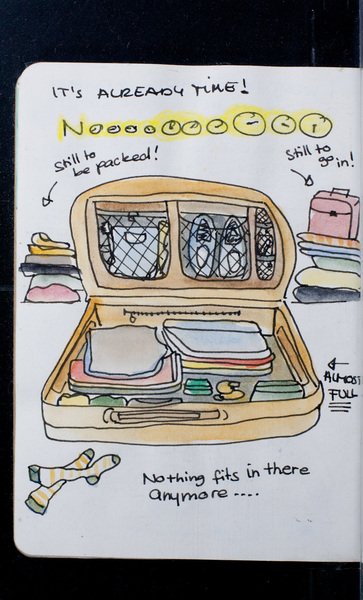 IT'S ALREADY TIME!
Noooooooooo
Still to
be packed!
Still to
go in!
ALMOST
FULL
Nothing fits in there
anymore ....